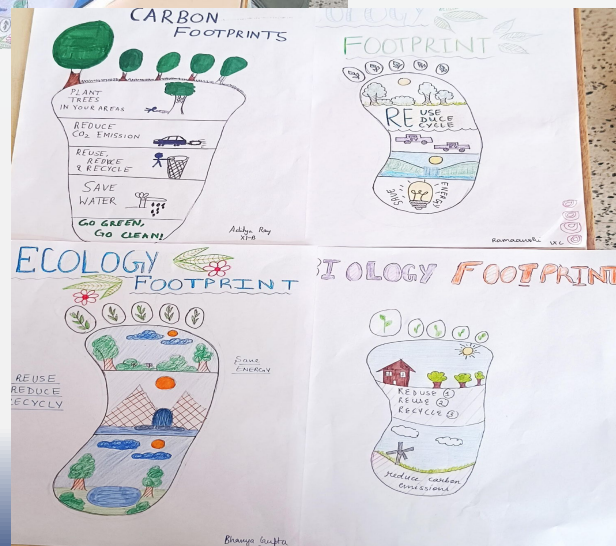 CARBON
FOOTPRINTS
PLANT
TREES
IN YOUR AREAS
REDUCE
CO2 EMISSION
REUSE,
REDUCE
& RECYCLE
SAVE
WATER
GO GREEN,
GO CLEAN!
Aditya Roy
XI-B
OLOGY
FOOTPRINT
RE USE
DUCE
CYCLE
SAVE
ENERGY
IX C
ECOLOGY
FOOTPRINT
Save
ENERGY
REUSE
REDUCE
ECYCLY
Bhavya Gupta
IOLOGY FOOTPRINT
REDUSE 1
REUSE 2
RECYCLE 3
reduce carbon
emissions